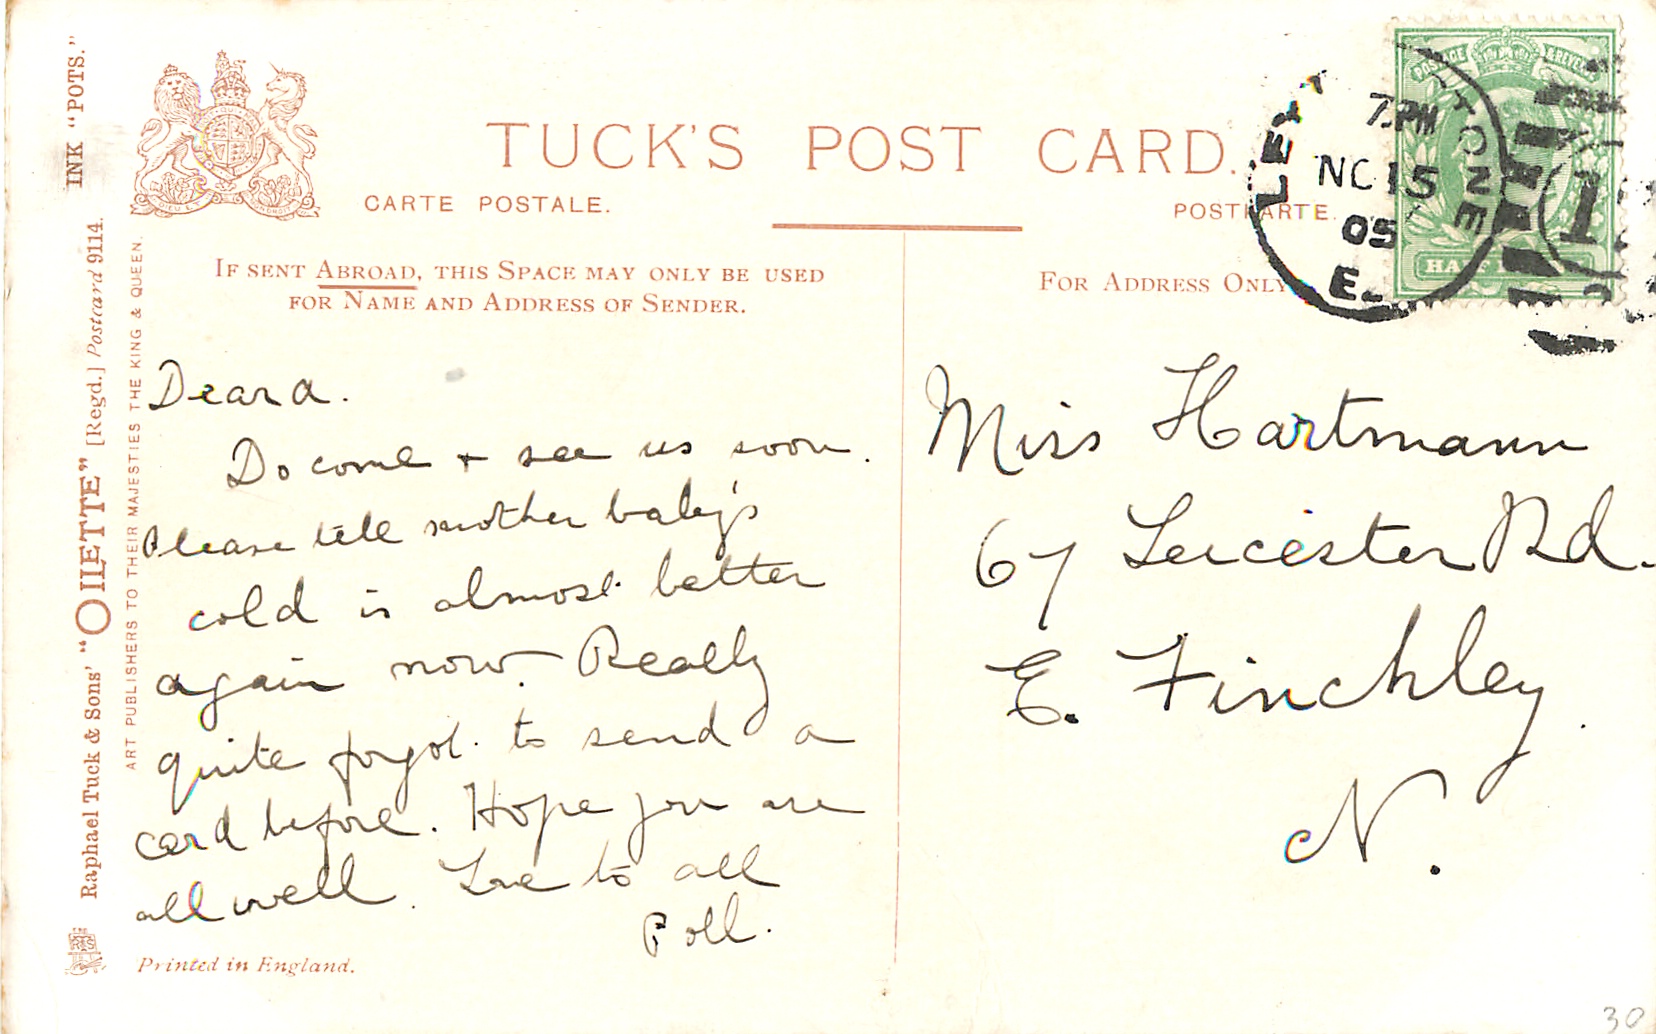 TUCK'S POST CARD.
CARTE POSTALE.
POSTKARTE.
IF SENT ABROAD, THIS SPACE MAY ONLY BE USED
FOR NAME AND ADDRESS OF SENDER.
FOR ADDRESS ONLY
INK "POTS."
Raphael Tuck & Sons' "OILETTE" [Regd.] Postcard 9114.
ART PUBLISHERS TO THEIR MAJESTIES THE KING & QUEEN.
7. PM
NO 15
05
E.
Dear a.
Do come + see us soon.
Please tell mother baby's
cold is almost better
again now. Really
quite forgot to send a
card before. Hope you are
all well. Love to all
Poll.
Miss Hartmann
67 Leicester Rd.
E. Finchley.
N.
Printed in England.
30